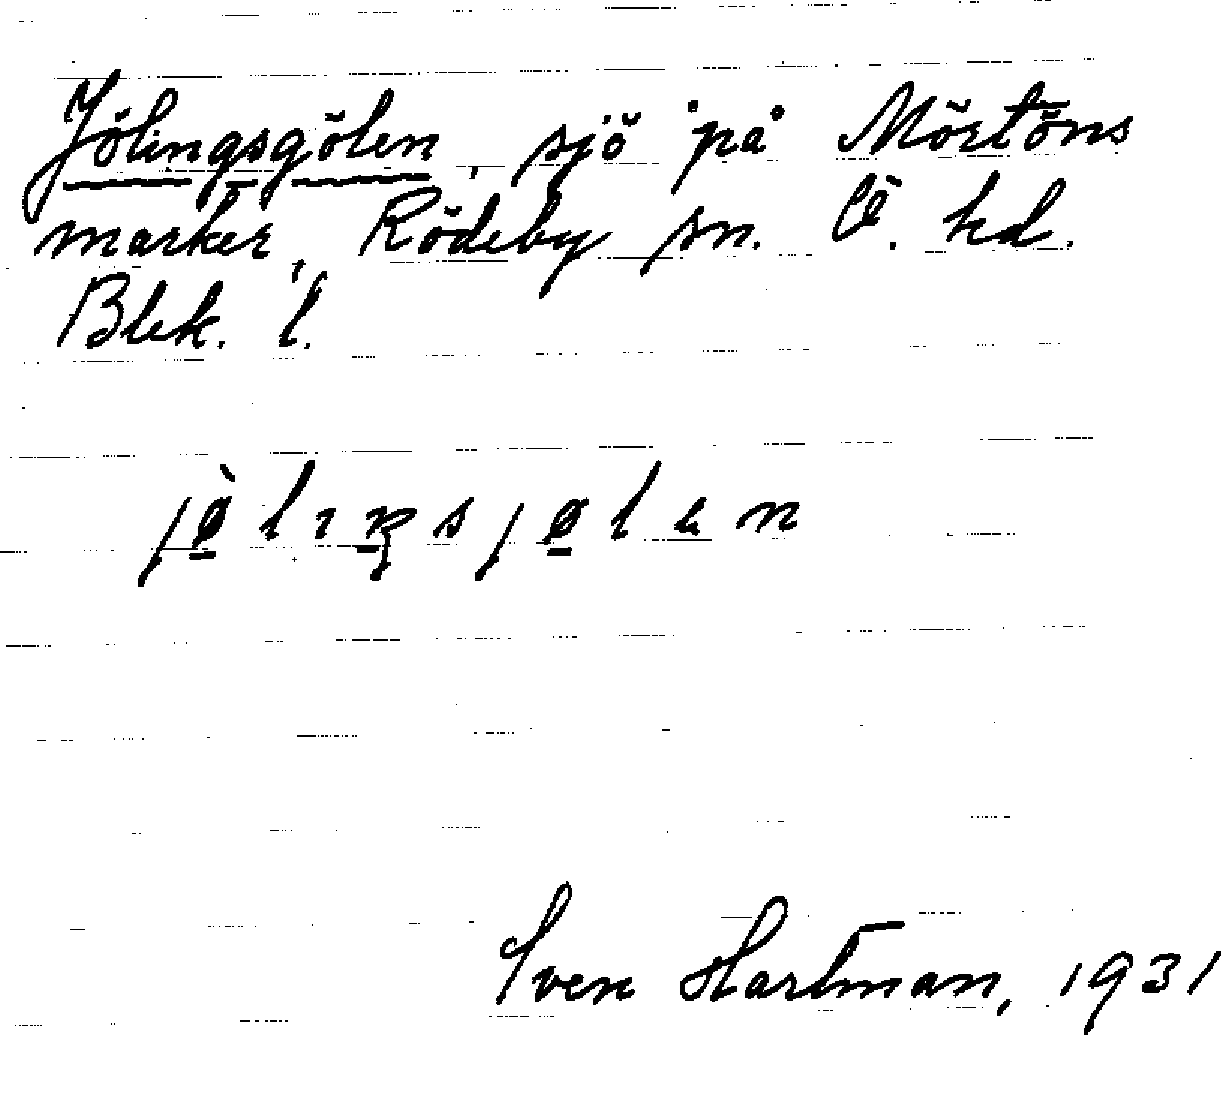 Jölingsgölen, sjö på Mörtöns
marker, Rödeby sn. Ö. hd.
Blek. l.
jø̀lıŋsjølen
Sven Hartman, 1931